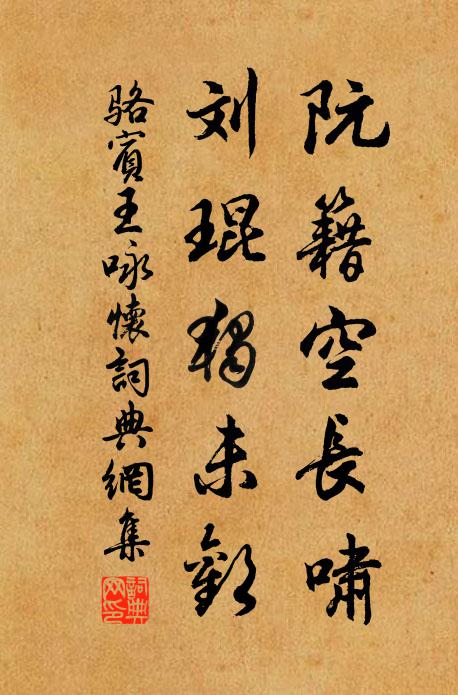 阮籍空長嘯
刘琨獨未歡
駱賓王咏懷詞典網集
詞典
网印